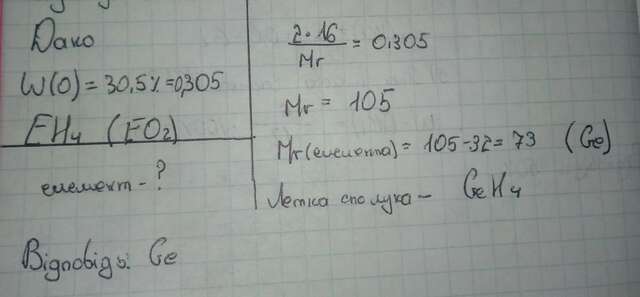 Дано
W(O) = 30,5% = 0,305
EH₄ (EO₂)
елемент - ?
2·16 / Mr = 0,305
Mr = 105
Mr(елемента) = 105-32 = 73 (Ge)
Летка сполука - GeH₄
Відповідь: Ge